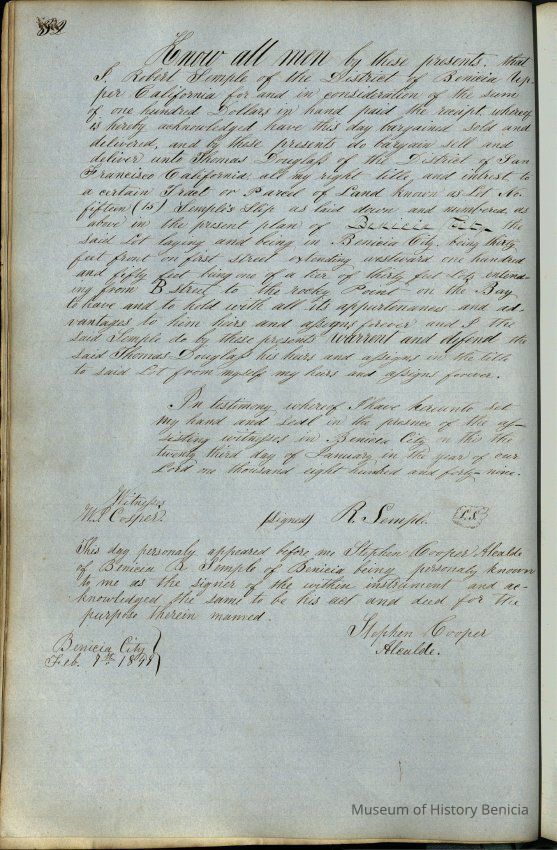 Know all men by these presents. that
I, Robert Semple of the District of Benicia Up-
per California for and in consideration of the sum
of one hundred Dollars in hand paid the receipt whereof
is hereby acknowledged have this day bargained sold and
delivered, and by these presents do bargain sell and
deliver unto Thomas Douglass of the District of San
Francisco California, all my right title, and intrest, to
a certain Tract or Parcel of Land known as Lot No.
fifteen (15) Semple's Slip as laid down and numbered as
above in the present plan of Benicia City the
said Lot laying and being in Benicia City, being thirty
feet front on first street extending westward one hundred
and fifty feet being one of a tier of thirty feet Lots extend-
ing from B street to the rocky Point on the Bay
to have and to hold with all its appurtenances and ad-
vantages to him heirs and assigns forever and I the
said Semple do by these presents warrent and defend the
said Thomas Douglass his heirs and assigns in the title
to said Lot from myself my heirs and assigns forever.
In testimony whereof I have hereunto set
my hand and seal in the presence of the as-
sisting witnesses in Benicia City on this the
twenty third day of January in the year of our
Lord one thousand eight hundred and forty-nine.
Witness
W. Cosper.
(signed) R. Semple. L.S.
This day personaly appeared before me Stephen Cooper Alcalde
of Benicia R. Semple of Benicia being personaly known
to me as the signer of the within instrument and ac-
knowledged the same to be his act and deed for the
purpose therein named.
Stephen Cooper
Alcalde.
Benicia City
Feb. 7th 1849
Museum of History Benicia